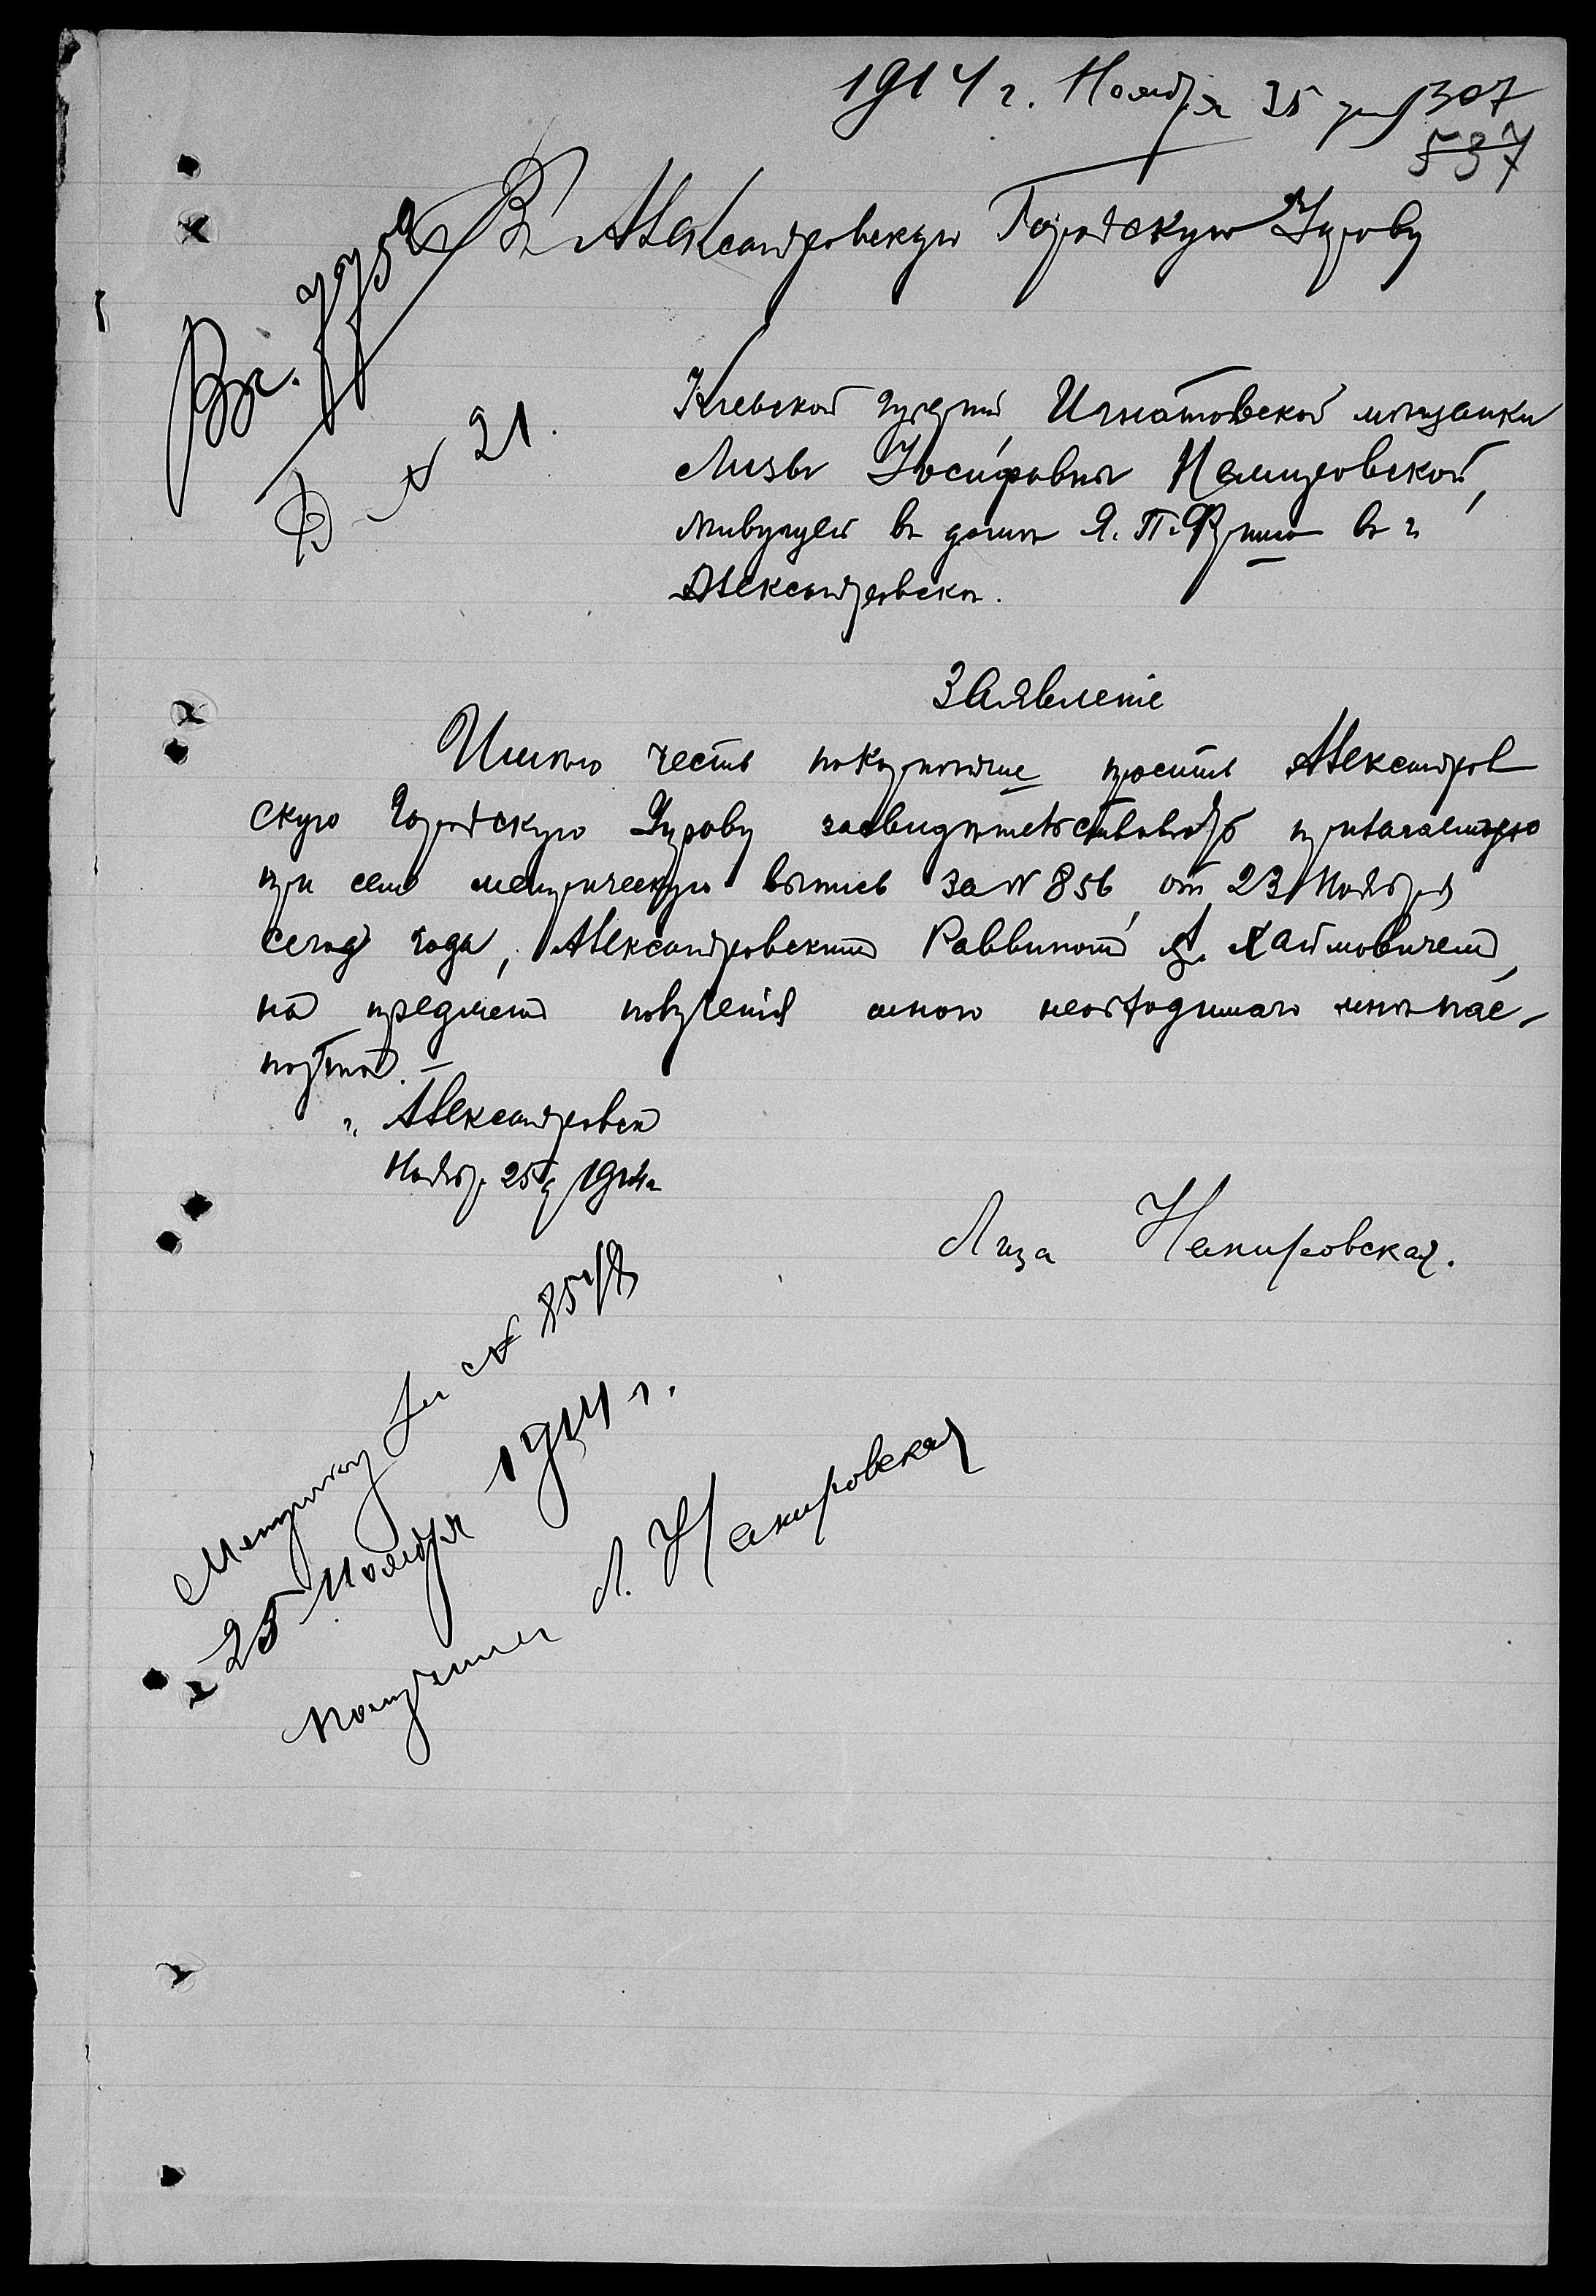 1914 г. Ноября 25 дня 307
537
Въ Александровскую Городскую Управу
Вх. 7759
Д № 21.
Кіевской губерніи Игнатовской мѣщанки
Лизы Іосифовны Немировской,
живущей въ домѣ Я. П. въ г.
Александровскѣ.
Заявленіе
Имѣю честь покорнѣйше просить Александров
скую Городскую Управу засвидѣтельствовать прилагаемую
при семъ метрическую выпись за № 856, отъ 23 Ноября
сего года, Александровскимъ Раввиномъ Хаимовичемъ,
на предметъ полученія мною необходимаго мнѣ пас-
порта. —
г. Александровск
Ноябр. 25 д 1914 г.
Лиза Немировская.
Метрику за №
25 Ноября 1914 г.
получила Л. Немировская